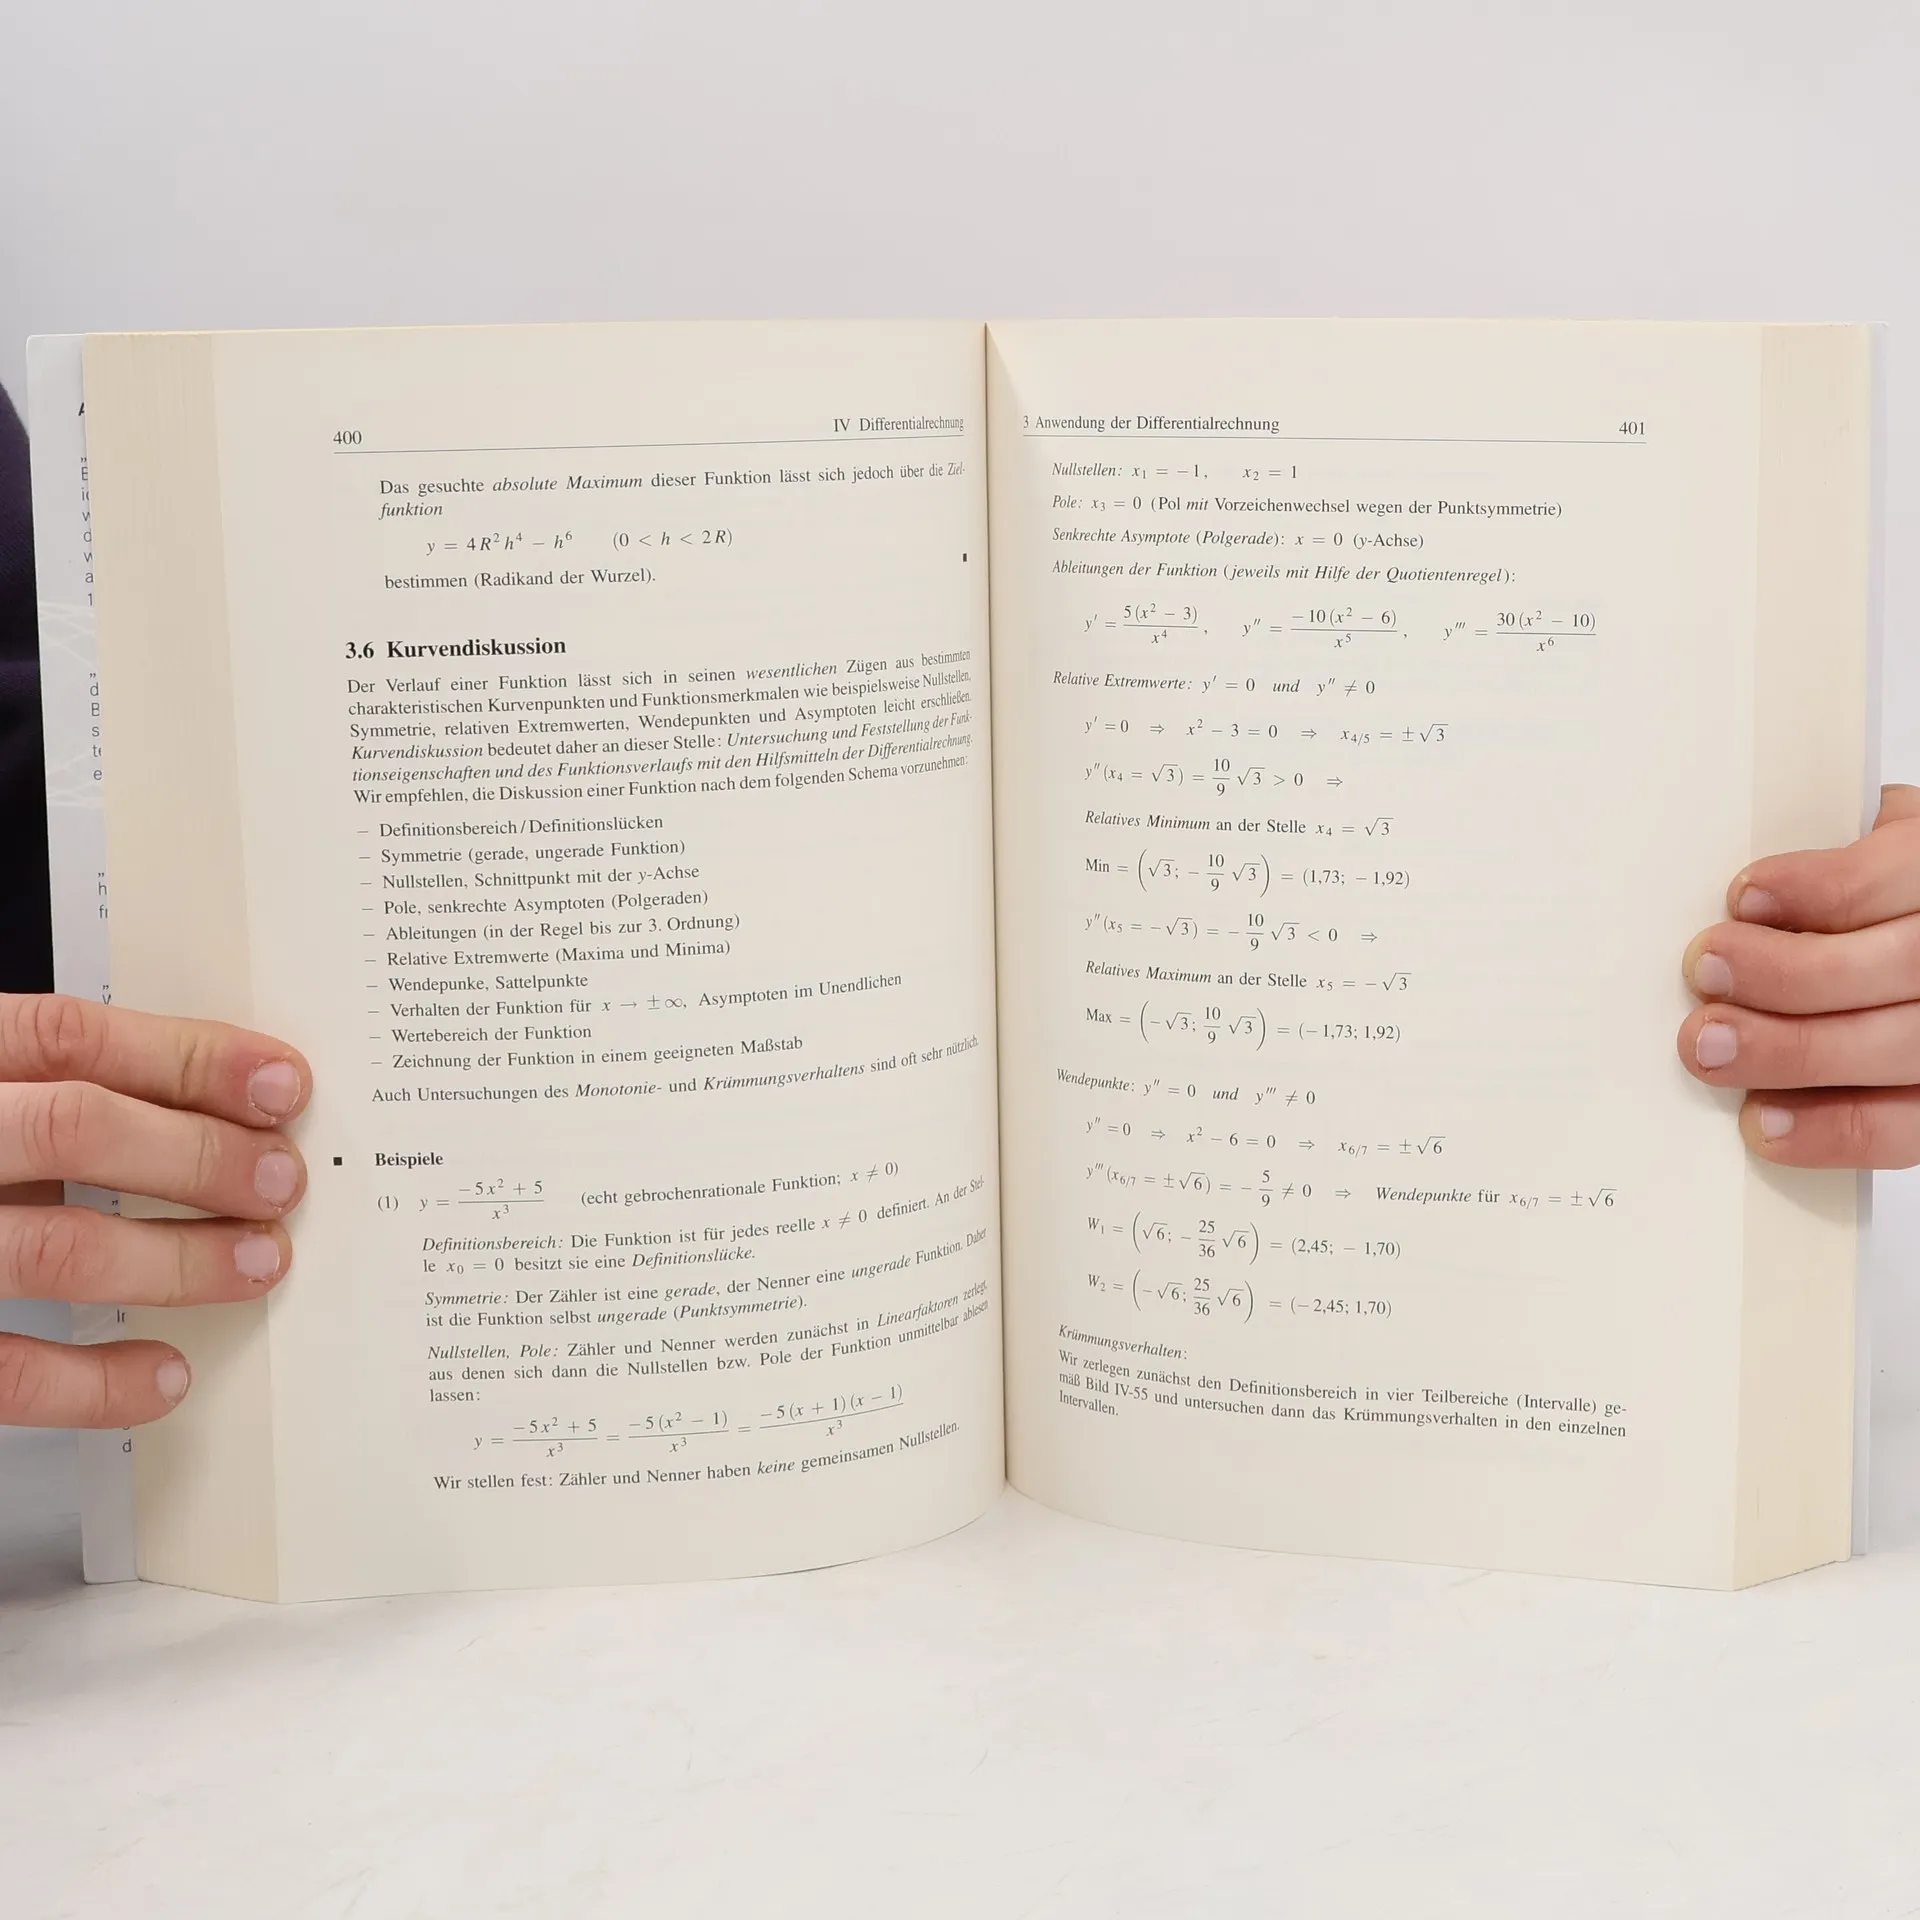 400
IV Differentialrechnung
Das gesuchte absolute Maximum dieser Funktion lässt sich jedoch über die Ziel-
funktion
y = 4R² h⁴ − h⁶ (0 < h < 2R)
bestimmen (Radikand der Wurzel).
3.6 Kurvendiskussion
Der Verlauf einer Funktion lässt sich in seinen wesentlichen Zügen aus bestimmten
charakteristischen Kurvenpunkten und Funktionsmerkmalen wie beispielsweise Nullstellen,
Symmetrie, relativen Extremwerten, Wendepunkten und Asymptoten leicht erschließen.
Kurvendiskussion bedeutet daher an dieser Stelle: Untersuchung und Feststellung der Funk-
tionseigenschaften und des Funktionsverlaufs mit den Hilfsmitteln der Differentialrechnung.
Wir empfehlen, die Diskussion einer Funktion nach dem folgenden Schema vorzunehmen:
– Definitionsbereich / Definitionslücken
– Symmetrie (gerade, ungerade Funktion)
– Nullstellen, Schnittpunkt mit der y-Achse
– Pole, senkrechte Asymptoten (Polgeraden)
– Ableitungen (in der Regel bis zur 3. Ordnung)
– Relative Extremwerte (Maxima und Minima)
– Wendepunke, Sattelpunkte
– Verhalten der Funktion für x → ±∞, Asymptoten im Unendlichen
– Wertebereich der Funktion
– Zeichnung der Funktion in einem geeigneten Maßstab
Auch Untersuchungen des Monotonie- und Krümmungsverhaltens sind oft sehr nützlich.
■ Beispiele
(1) y = (−5x² + 5)/x³ (echt gebrochenrationale Funktion; x ≠ 0)
Definitionsbereich: Die Funktion ist für jedes reelle x ≠ 0 definiert. An der Stel-
le x₀ = 0 besitzt sie eine Definitionslücke.
Symmetrie: Der Zähler ist eine gerade, der Nenner eine ungerade Funktion. Daher
ist die Funktion selbst ungerade (Punktsymmetrie).
Nullstellen, Pole: Zähler und Nenner werden zunächst in Linearfaktoren zerlegt,
aus denen sich dann die Nullstellen bzw. Pole der Funktion unmittelbar ablesen
lassen:
y = (−5x² + 5)/x³ = (−5(x² − 1))/x³ = (−5(x + 1)(x − 1))/x³
Wir stellen fest: Zähler und Nenner haben keine gemeinsamen Nullstellen.
3 Anwendung der Differentialrechnung
401
Nullstellen: x₁ = −1, x₂ = 1
Pole: x₃ = 0 (Pol mit Vorzeichenwechsel wegen der Punktsymmetrie)
Senkrechte Asymptote (Polgerade): x = 0 (y-Achse)
Ableitungen der Funktion (jeweils mit Hilfe der Quotientenregel):
y′ = 5(x² − 3)/x⁴, y″ = −10(x² − 6)/x⁵, y‴ = 30(x² − 10)/x⁶
Relative Extremwerte: y′ = 0 und y″ ≠ 0
y′ = 0 ⇒ x² − 3 = 0 ⇒ x₄/₅ = ±√3
y″(x₄ = √3) = 10/9 √3 > 0 ⇒
Relatives Minimum an der Stelle x₄ = √3
Min = (√3; − 10/9 √3) = (1,73; − 1,92)
y″(x₅ = −√3) = − 10/9 √3 < 0 ⇒
Relatives Maximum an der Stelle x₅ = −√3
Max = (−√3; 10/9 √3) = (−1,73; 1,92)
Wendepunkte: y″ = 0 und y‴ ≠ 0
y″ = 0 ⇒ x² − 6 = 0 ⇒ x₆/₇ = ±√6
y‴(x₆/₇ = ±√6) = − 5/9 ≠ 0 ⇒ Wendepunkte für x₆/₇ = ±√6
W₁ = (√6; − 25/36 √6) = (2,45; − 1,70)
W₂ = (−√6; 25/36 √6) = (−2,45; 1,70)
Krümmungsverhalten:
Wir zerlegen zunächst den Definitionsbereich in vier Teilbereiche (Intervalle) ge-
mäß Bild IV-55 und untersuchen dann das Krümmungsverhalten in den einzelnen
Intervallen.